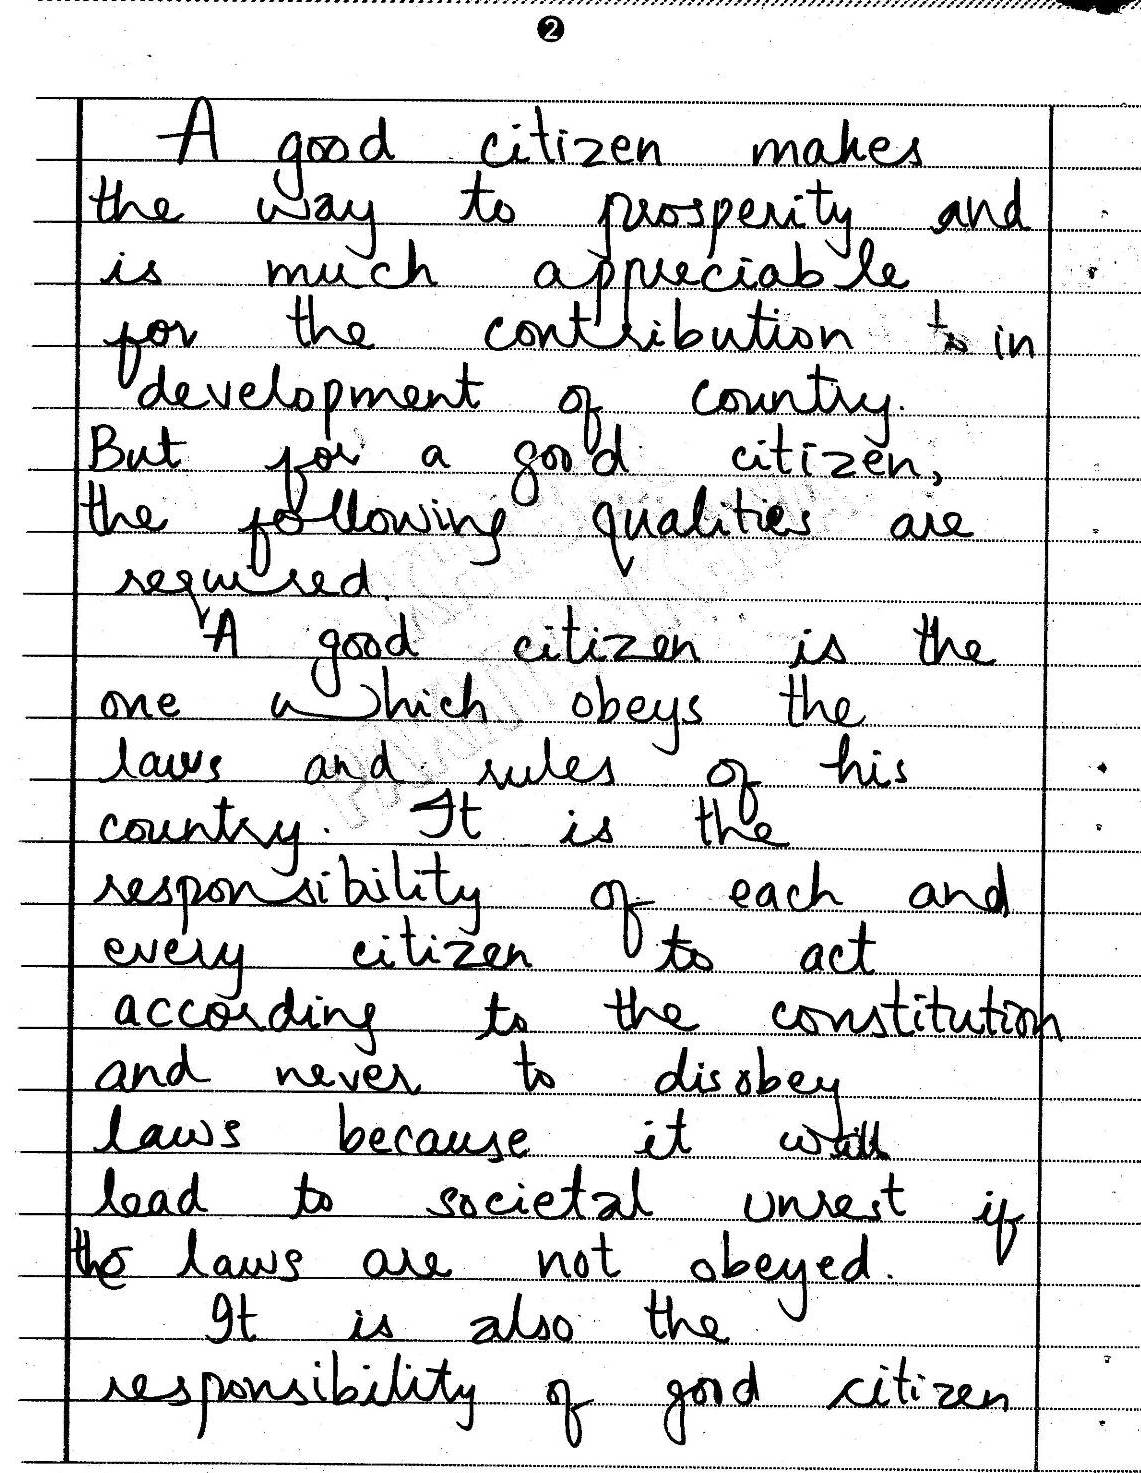 2
A good citizen makes
the way to prosperity and
is much appreciable
for the contribution to in
development of country.
But for a good citizen,
the following qualities are
required.
A good citizen is the
one which obeys the
laws and rules of his
country. It is the
responsibility of each and
every citizen to act
according to the constitution
and never to disobey
laws because it will
lead to societal unrest if
the laws are not obeyed.
It is also the
responsibility of good citizen